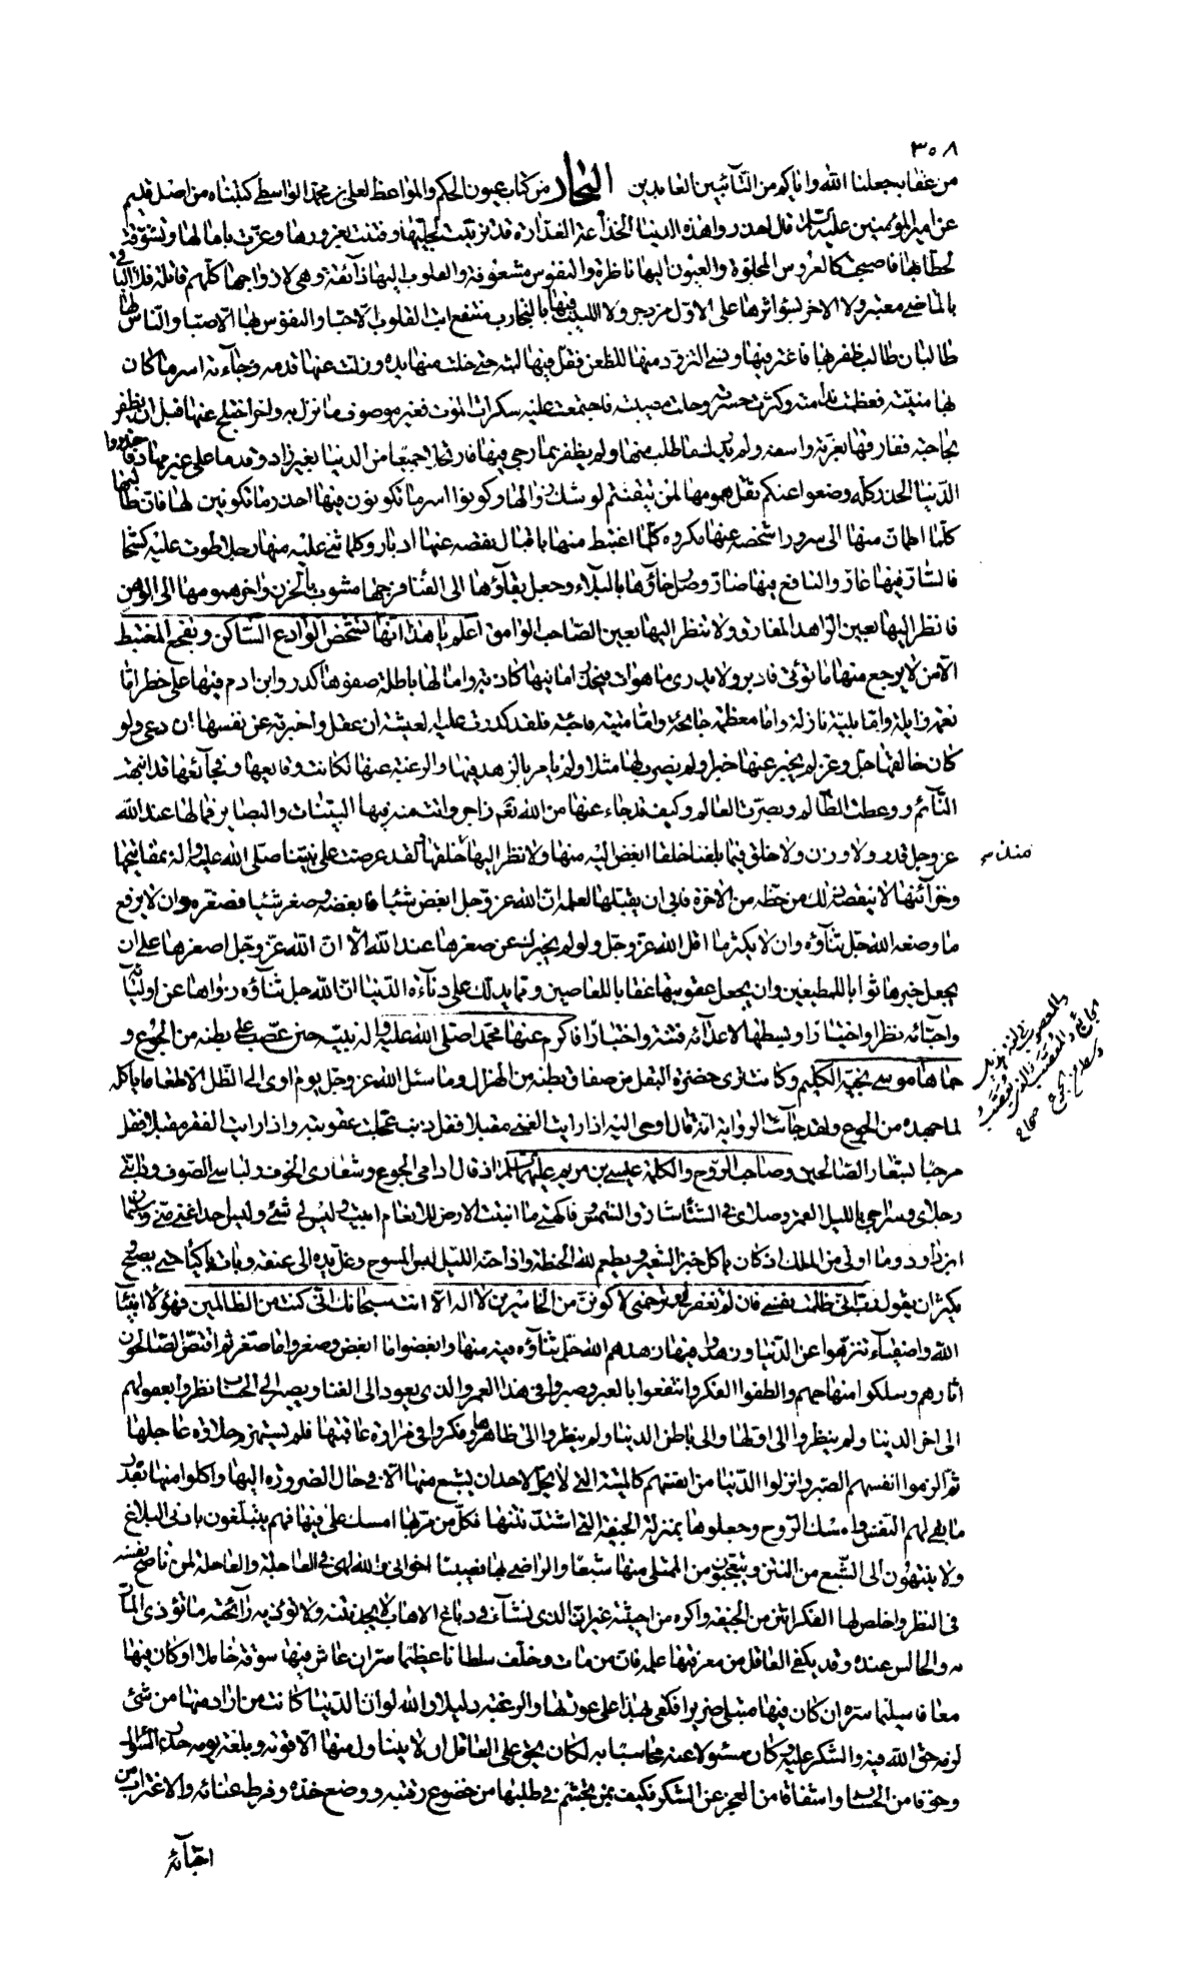 ٣٠٨
من عقابه جعلنا الله واياكم من التآئبين العابدين البحار من كتاب عيون الحكم والمواعظ لعلى بن محمد الواسطى كتبناه من اصل قديم
عن امير المؤمنين عليه السلم قال احذروا هذه الدنيا الخداعة الغدارة قد تزينت بحليها وفتنت بغرورها وغرت بامالها وتشوقت
لخطابها فاصبحت كالعروس المجلوة والعيون اليها ناظرة والنفوس مشغوفة والقلوب اليها تآئقة وهى لازواجها كلهم قاتلة فلا الباقى
بالماضى معتبر ولا الاخر بسوء اثرها على الاول مزدجر ولا اللبيب فيها بالتجارب منتفع ابت القلوب لها الا حبا والنفوس بها الا صبا والناس لها
طالبان طالب ظفر بها فاغتر فيها ونسى التزود منها للظعن فقل فيها لبثه حتى خلت منها يده وزلت عنها قدمه وجآءته اسر ما كان
بها منيته فعظمت ندامته وكثرت حسرته وجلت مصيبته فاجتمعت عليه سكرات الموت فغير موصوف ما نزل به واخر اختلج عنها قبل ان يظفر
بحاجته ففارقها بغرته واسفه ولم يدرك ما طلب منها ولم يظفر بما رجى فيها فارتحلا جميعا من الدنيا بغير زاد وقدما على غير مهاد فاحذروا
الدنيا الحذر كله وضعوا عنكم ثقل همومها لما تيقنتم لوشك زوالها وكونوا اسر ما تكونون فيها احذر ما تكونون لها فان طالبها
كلما اطمان منها الى سرور اشخصه عنها مكروه كلما اغتبط منها باقبال نغصه عنها ادبار وكلما ثنى عليه منها رجلا طوت عليه كشحا
فالسار فيها غار والنافع فيها ضار وصل رخآؤها بالبلآء وجعل بقآؤها الى الفنا فرحها مشوب بالحزن واخر همومها الى الوهن
فانظر اليها بعين الزاهد المفارق ولا تنظر اليها بعين الصاحب الوامق اعلم يا هذا انها تشخص الوادع الساكن وتفجع المغتبط
الآمن لا يرجع منها ما تولى فادبر ولا يدرى ما هو ات فيحذر امانيها كاذبة وامالها باطلة صفوها كدر وابن ادم فيها على خطر اما
نعمة زايلة واما بلية نازلة واما معظمة جايحة واما منية قاضية فلقد كدرت عليه العيشة ان عقل واخبرته عن نفسها ان دعى ولو
كان خالقها جل وعز لم يخبر عنها خبرا ولم يضرب لها مثلا ولم يامر بالزهد فيها والرغبة عنها لكانت وقايعها وفجآئعها قد انبهت
النآئم ووعظت الظالم وبصرت العالم وكيف وقد جاء عنها من الله تعم زاجر واتت منه فيها البينات والبصاير فما لها عند الله
عز وجل قدر ولا وزن ولا خلق فيما بلغنا خلقا ابغض اليه منها ولا نظر اليها مذ خلقها ولقد عرضت على نبينا صلى الله عليه واله بمفاتيحها
منذ
وخزآئنها لا ينقصه ذلك من حظه من الاخرة فابى ان يقبلها لعلمه ان الله عز وجل ابغض شيئا فابغضه وصغر شيئا فصغره وان لا يرفع
ما وضعه الله جل ثنآؤه وان لا يكثر ما اقل الله عز وجل ولو لم يخبرك عن صغرها عند الله الا ان الله عز وجل اصغرها على ان
يجعل خيرها ثوابا للمطيعين وان يجعل عقوبتها عقابا للعاصين ومما يدلك على دنآءة الدنيا ان الله جل ثنآؤه زواها عن اوليآئه
واحبآئه نظرا واختيارا وبسطها لاعدآئه فتنة واختبارا فاكرم عنها محمدا صلى الله عليه واله نبيه حين عصب على بطنه من الجوع و
حماها موسى نجيه الكليم وكانت ترى خضرة البقل من صفاق بطنه من الهزال وما سئل الله عز وجل يوم اوى الى الظل الا طعاما ياكله
لما جهده من الجوع ولقد جآءت الرواية انه قال اوحى اليه اذا رايت الغنى مقبلا فقل ذنب عجلت عقوبته واذا رايت الفقر مقبلا فقل
مرحبا بشعار الصالحين وصاحب الروح والكلمة عيسى بن مريم عليهما السلم اذ قال ادامى الجوع وشعارى الخوف ولباسى الصوف ودابتى
رجلاى وسراجى بالليل القمر وصلاى فى الشتآء مشارق الشمس وفاكهتى ما انبتت الارض للانعام ابيت وليس لى شئ وليس احد اغنى منى وسليمان
ابن داود وما اوتى من الملك اذ كان ياكل خبز الشعير ويطعم امه الحنطة واذا جنه الليل لبس المسوح وغل يده الى عنقه وبات باكيا حتى يصبح
يكثر ان يقول رب انى ظلمت نفسى فان لم تغفر لى وترحمنى لاكونن من الخاسرين لا اله الا انت سبحانك انى كنت من الظالمين فهؤلآء انبيآء
الله واصفيآءه تنزهوا عن الدنيا وزهدوا فيما زهدهم الله جل ثنآؤه فيه منها وابغضوا ما ابغض وصغروا ما صغر ثم اقتص الصالحون
اثارهم وسلكوا منهاجهم والطفوا الفكر وانتفعوا بالعبر وصبروا فى هذا العمر الذى يعود الى الفنا ويصير الى الحساب نظروا بعقولهم
الى اخر الدنيا ولم ينظروا الى اولها والى باطن الدنيا ولم ينظروا الى ظاهرها وفكروا فى مرارة عاقبتها فلم يستمرهم حلاوة عاجلها
ثم الزموا انفسهم الصبر وانزلوا الدنيا من انفسهم كالميتة التى لا يحل لاحد ان يشبع منها الا فى حال الضرورة اليها واكلوا منها بقدر
ما بقى لهم النفس وامسك الروح وجعلوها بمنزلة الجيفة التى اشتد نتنها فكل من مر بها امسك على فيه فهم يتبلغون بادنى البلاغ
ولا ينتهون الى الشبع من النتن ويتعجبون من الممتلى منها شبعا والراضى بها نصيبا اخوانى والله لهى فى العاجلة والعاجلة لمن ناصح نفسه
فى النظر واخلص لها الفكر انتن من الجيفة واكره من الميتة غير ان الذى نشآء فى دباغ الاهاب لا يجد نتنه ولا توذيه رآئحته ما توذى المآر
به والجالس عنده وقد يكفى العاقل من معرفتها علمه فان من مات وخلف سلطانا عظيما سره ان عاش فيها سوقة خاملا او كان فيها
معافا سليما سره ان كان فيها مبتلى ضريرا فكفى بهذا على عورتها والرغبة دليلا والله لو ان الدنيا كانت من اراد منها من شئ
لزمه حق الله فيه والشكر عليه وكان مسئولا عنه محاسبا به لكان يحق على العاقل ان لا يتناول منها الا قوته وبلغة يومه حذر السؤال
وخوفا من الحساب واشفاقا من العجز عن الشكر فكيف بمن تجشم فى طلبها من خضوع رقبته ووضع خده وفرط عنائه والاغتراب من
احبآئه